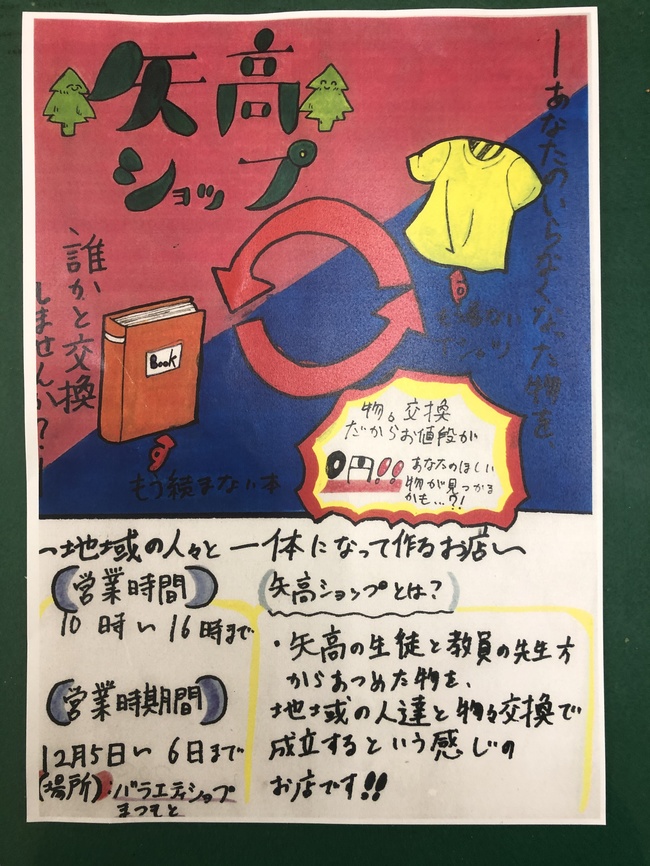 矢高
ショップ
ーあなたのいらなくなった物を、
誰かと交換
しませんか?ー
Book
もう読まない本
物。交換
だからお値段が
0円!!
あなたのほしい
物が見つかる
かも…?!
〜地域の人々と一体になって作るお店〜
(営業時間)
10時〜16時まで
(営業時期間)
12月5日〜6日まで
(場所):バラエティショップ
まつもと
(矢高ショップとは?)
・矢高の生徒と教員の先生方
からあつめた物を、
地域の人達と物々交換で
成立するという感じの
お店です!!